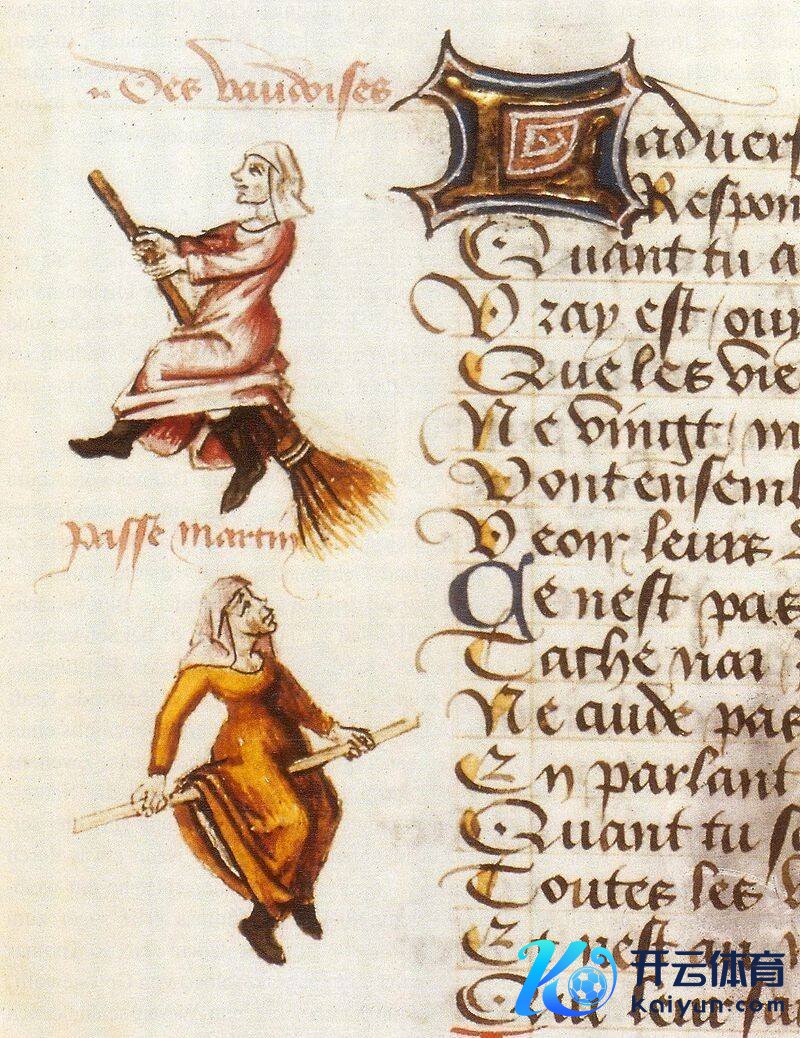 Des vaudoises
passe martin
Ladvers
Respon
Quant tu a
Vray est / ouy
Que les vie
Ne vingt m
Vont ensembl
Veoir leurs
Ce nest pas
Tache nai
Ne cuide pas
En parlant
Quant tu
Toutes les
Ce nest
leur
开云体育
kaiyun.com